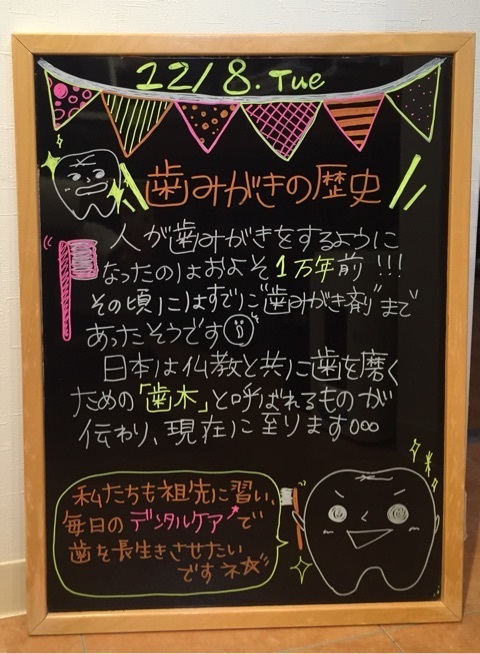 12/8. Tue
歯みがきの歴史
人が歯みがきをするように
なったのはおよそ1万年前!!!
その頃にはすでに"歯みがき剤"まで
あったそうです
日本は仏教と共に歯を磨く
ための「歯木」と呼ばれるものが
伝わり、現在に至ります。。。
私たちも祖先に習い、
毎日のデンタルケアで
歯を長生きさせたい
ですネ☆